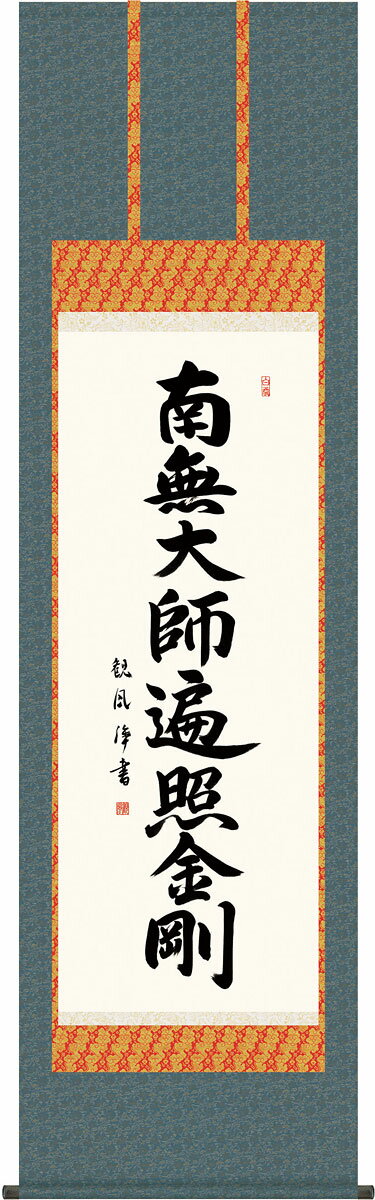 南無大師遍照金剛
観風浄書